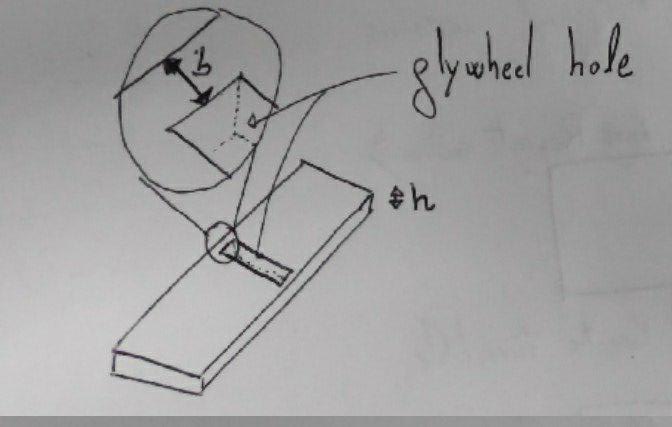 b
glywheel hole
h